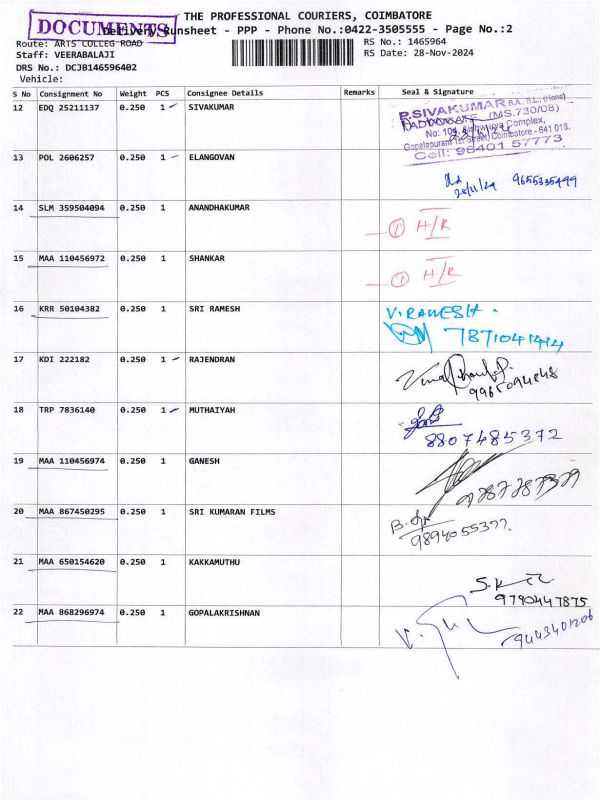 THE PROFESSIONAL COURIERS, COIMBATORE
DOCUMENTS
Delivery Runsheet - PPP - Phone No.:0422-3505555 - Page No.:2
Route: ARTS COLLEG ROAD
RS No.: 1465964
Staff: VEERABALAJI
RS Date: 28-Nov-2024
DRS No.: DCJB146596402
Vehicle:
S No Consignment No Weight PCS Consignee Details Remarks Seal & Signature
12 EDQ 25211137 0.250 1 SIVAKUMAR
P.SIVAKUMAR B.A., B.L., (Hons)
ADVOCATE (MS.730/08)
Complex,
Gopalapuram 1st Street, Coimbatore - 641 018.
Cell: 98401 57773
13 POL 2606257 0.250 1 ELANGOVAN
28/11/24 9655335499
14 SLM 359504094 0.250 1 ANANDHAKUMAR
① H/R
15 MAA 110456972 0.250 1 SHANKAR
① H/R
16 KRR 50104382 0.250 1 SRI RAMESH
V. RAMESH.
7871041414
17 KDI 222182 0.250 1 RAJENDRAN
18 TRP 7836140 0.250 1 MUTHAIYAH
8807485372
19 MAA 110456974 0.250 1 GANESH
20 MAA 867450295 0.250 1 SRI KUMARAN FILMS
21 MAA 650154620 0.250 1 KAKKAMUTHU
9790447875
22 MAA 868296974 0.250 1 GOPALAKRISHNAN
9443401206